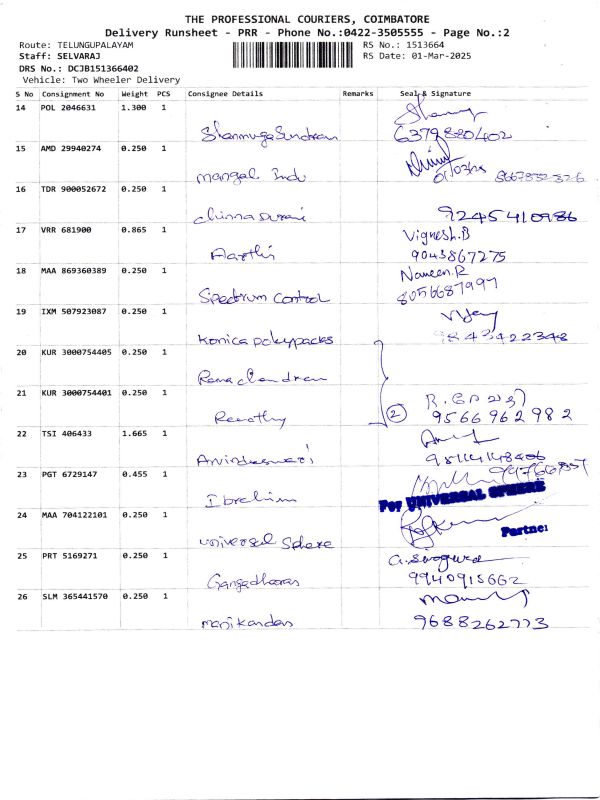 THE PROFESSIONAL COURIERS, COIMBATORE
Delivery Runsheet - PRR - Phone No.:0422-3505555 - Page No.:2
Route: TELUNGUPALAYAM
RS No.: 1513664
Staff: SELVARAJ
RS Date: 01-Mar-2025
DRS No.: DCJB151366402
Vehicle: Two Wheeler Delivery
S No Consignment No Weight PCS Consignee Details Remarks Seal & Signature
14 POL 2046631 1.300 1
Shanmuga Sundram 6379820402
15 AMD 29940274 0.250 1
Mangal Indu 01/03/25
16 TDR 900052672 0.250 1
Chinnadurai 9245410986
17 VRR 681900 0.865 1 Vignesh.B
Aarthi 9043867275
18 MAA 869360389 0.250 1 Naveen.R
Spectrum Control 8056687997
19 IXM 507923087 0.250 1 Vijay
Konica polypacks 9843422348
20 KUR 3000754405 0.250 1
Ramachandran
21 KUR 3000754401 0.250 1
Revathy 2 9566962982
22 TSI 406433 1.665 1
23 PGT 6729147 0.455 1
Ibrahim For UNIVERSAL SPHERE
24 MAA 704122101 0.250 1
Universal Sphere Partner
25 PRT 5169271 0.250 1
Gangadharan 9940915662
26 SLM 365441570 0.250 1
Manikandan 9688262773